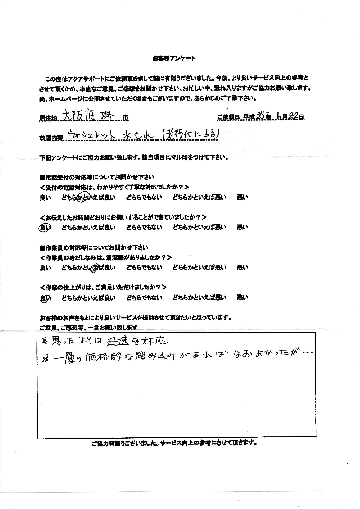 お客様アンケート
この度はアクアサポートにご依頼頂きまして誠に有難うございました。今後、より良いサービス向上の参考と
させて頂くため、お客様のご意見、ご感想をお聞かせ下さい。お忙しい中、恐れ入りますがご協力お願い致します。
尚、ホームページに公開させていただく場合もございますので、あらかじめご了承下さい。
大阪府 堺 市
ご依頼日 平成 年 月 22日
作業内容 ウォシュレット 水もれ
下記アンケートにご協力お願い致します。該当項目に丸印をつけて下さい。
■電話受付の対応等についてお聞かせ下さい
<受付の電話対応は、わかりやすく丁寧な対応でしたか?>
良い どちらかといえば良い どちらでもない どちらかといえば悪い 悪い
<お伝えしたお時間どおりにお伺いすることができていましたか?>
良い どちらかといえば良い どちらでもない どちらかといえば悪い 悪い
■作業員の対応等についてお聞かせ下さい
<作業員の身だしなみは、清潔感がありましたか?>
良い どちらかといえば良い どちらでもない どちらかといえば悪い 悪い
<作業の仕上がりは、ご満足いただけましたか?>
良い どちらかといえば良い どちらでもない どちらかといえば悪い 悪い
お客様のお声をもとにより良いサービスが提供させて頂きたいと思っています。
ご意見、ご感想等、一言お願い致します
※思ったよりは 迅速な対応
※一層の価格的な踏み込みがあれば なおよかったが…
ご協力有難うございました。サービス向上の参考にさせて頂きます。